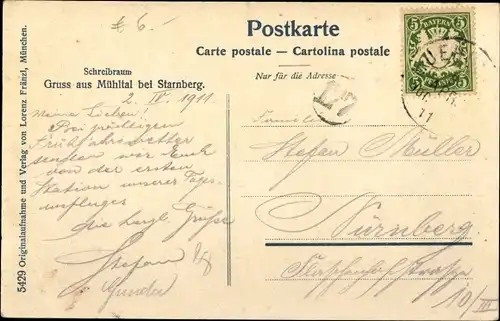 £ 6.-
Postkarte
Carte postale — Cartolina postale
Nur für die Adresse
Schreibraum
Gruss aus Mühltal bei Starnberg.
2. IV. 1911.
Meine Lieben!
Bei
Frühjahrswetter
senden wir Euch
von der ersten
Station unseres Tages-
ausfluges
die herzl. Grüße
Stefan
Familie
Stefan Müller
Nürnberg.
10/III
BAYERN
5 5
11
5429 Originalaufnahme und Verlag von Lorenz Fränzl, München.